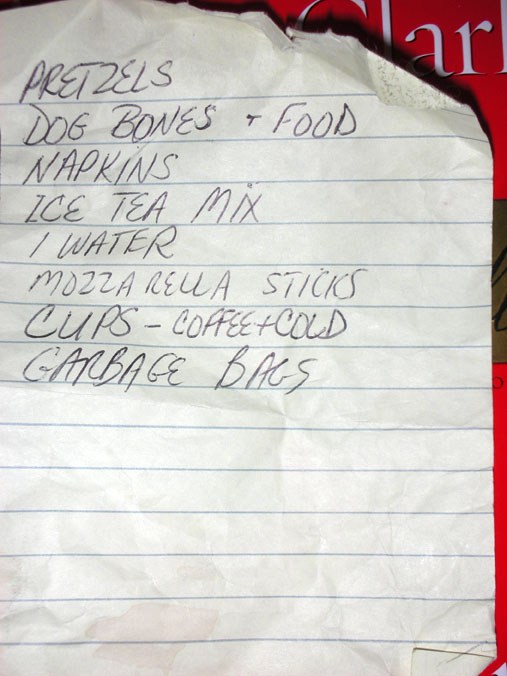 Clarl
PRETZELS
DOG BONES + FOOD
NAPKINS
ICE TEA MIX
1 WATER
MOZZARELLA STICKS
CUPS - COFFEE+COLD
GARBAGE BAGS